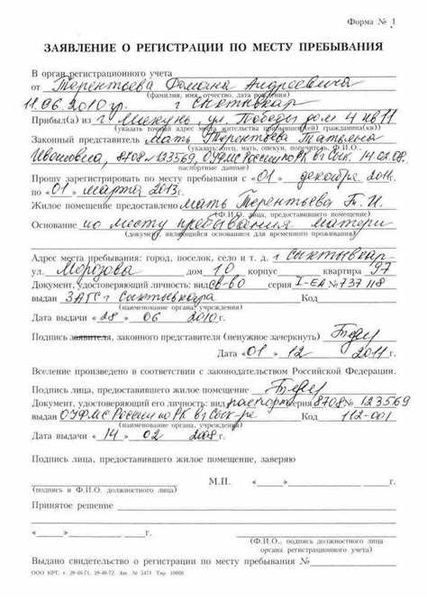 Форма № 1
ЗАЯВЛЕНИЕ О РЕГИСТРАЦИИ ПО МЕСТУ ПРЕБЫВАНИЯ
В орган регистрационного учета
от Терентьева Романа Андреевича
(фамилия, имя, отчество, дата рождения)
11.06.2010 г.р. г Сыктывкар
Прибыл(а) из г Микунь, ул. Победы дом 4 кв 11
(указать точный адрес места жительства прибывшего(ей) гражданина(ки))
Законный представитель Мать Терентьева Татьяна
(указать: мать, отец, опекун, попечитель, Ф.И.О.,
Ивановна, 8708 № 123569, ОУФМС России по РК в г Сык. 14.02.08.
паспортные данные)
Прошу зарегистрировать по месту пребывания с «01» декабря 2011г.
по «01» марта 2013г.
Жилое помещение предоставлено Мать Терентьева Т. И.
(Ф.И.О. лица, предоставившего помещение)
Основание по месту пребывания матери
(документ, являющийся основанием для временного проживания)
Адрес места пребывания: город, поселок, село и т. д. г Сыктывкар
ул. Морозова дом 10 корпус квартира 97
Документ, удостоверяющий личность: вид св-во серия I-ЕА № 737118
выдан ЗАГС г Сыктывкара Код
(наименование органа, учреждения)
Дата выдачи «28» 06 2010 г.
Подпись заявителя, законного представителя (ненужное зачеркнуть)
Дата «01» 12 2011 г.
Вселение произведено в соответствии с законодательством Российской Федерации.
Подпись лица, предоставившего жилое помещение
Документ, удостоверяющий его личность: вид паспорт серия 8708 № 123569
выдан ОУФМС России по РК в г Сык-ре Код 112-001
(наименование органа, учреждения)
Дата выдачи «14» 02 2008 г.
Подпись лица, предоставившего жилое помещение, заверяю
М.П. « » г.
(подпись и Ф.И.О. должностного лица)
Принятое решение
« » г.
(Ф.И.О., подпись должностного лица
органа регистрационного учета)
Выдано свидетельство о регистрации по месту пребывания №